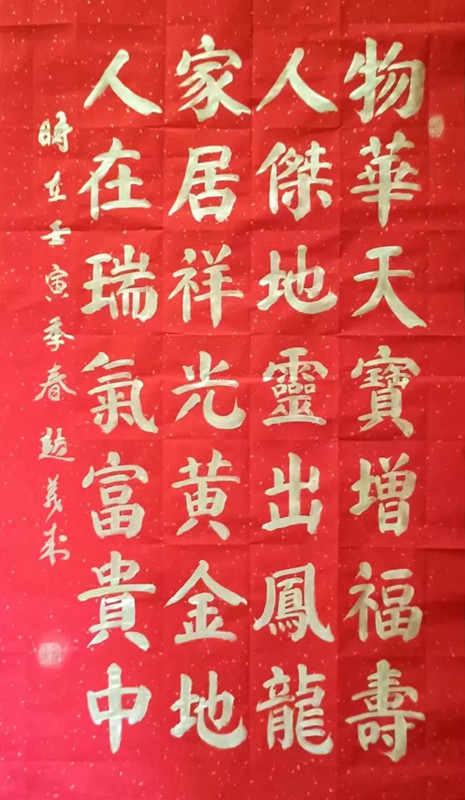 物華天寶增福壽
人傑地靈出鳳龍
家居祥光黃金地
人在瑞氣富貴中
時在壬寅季春